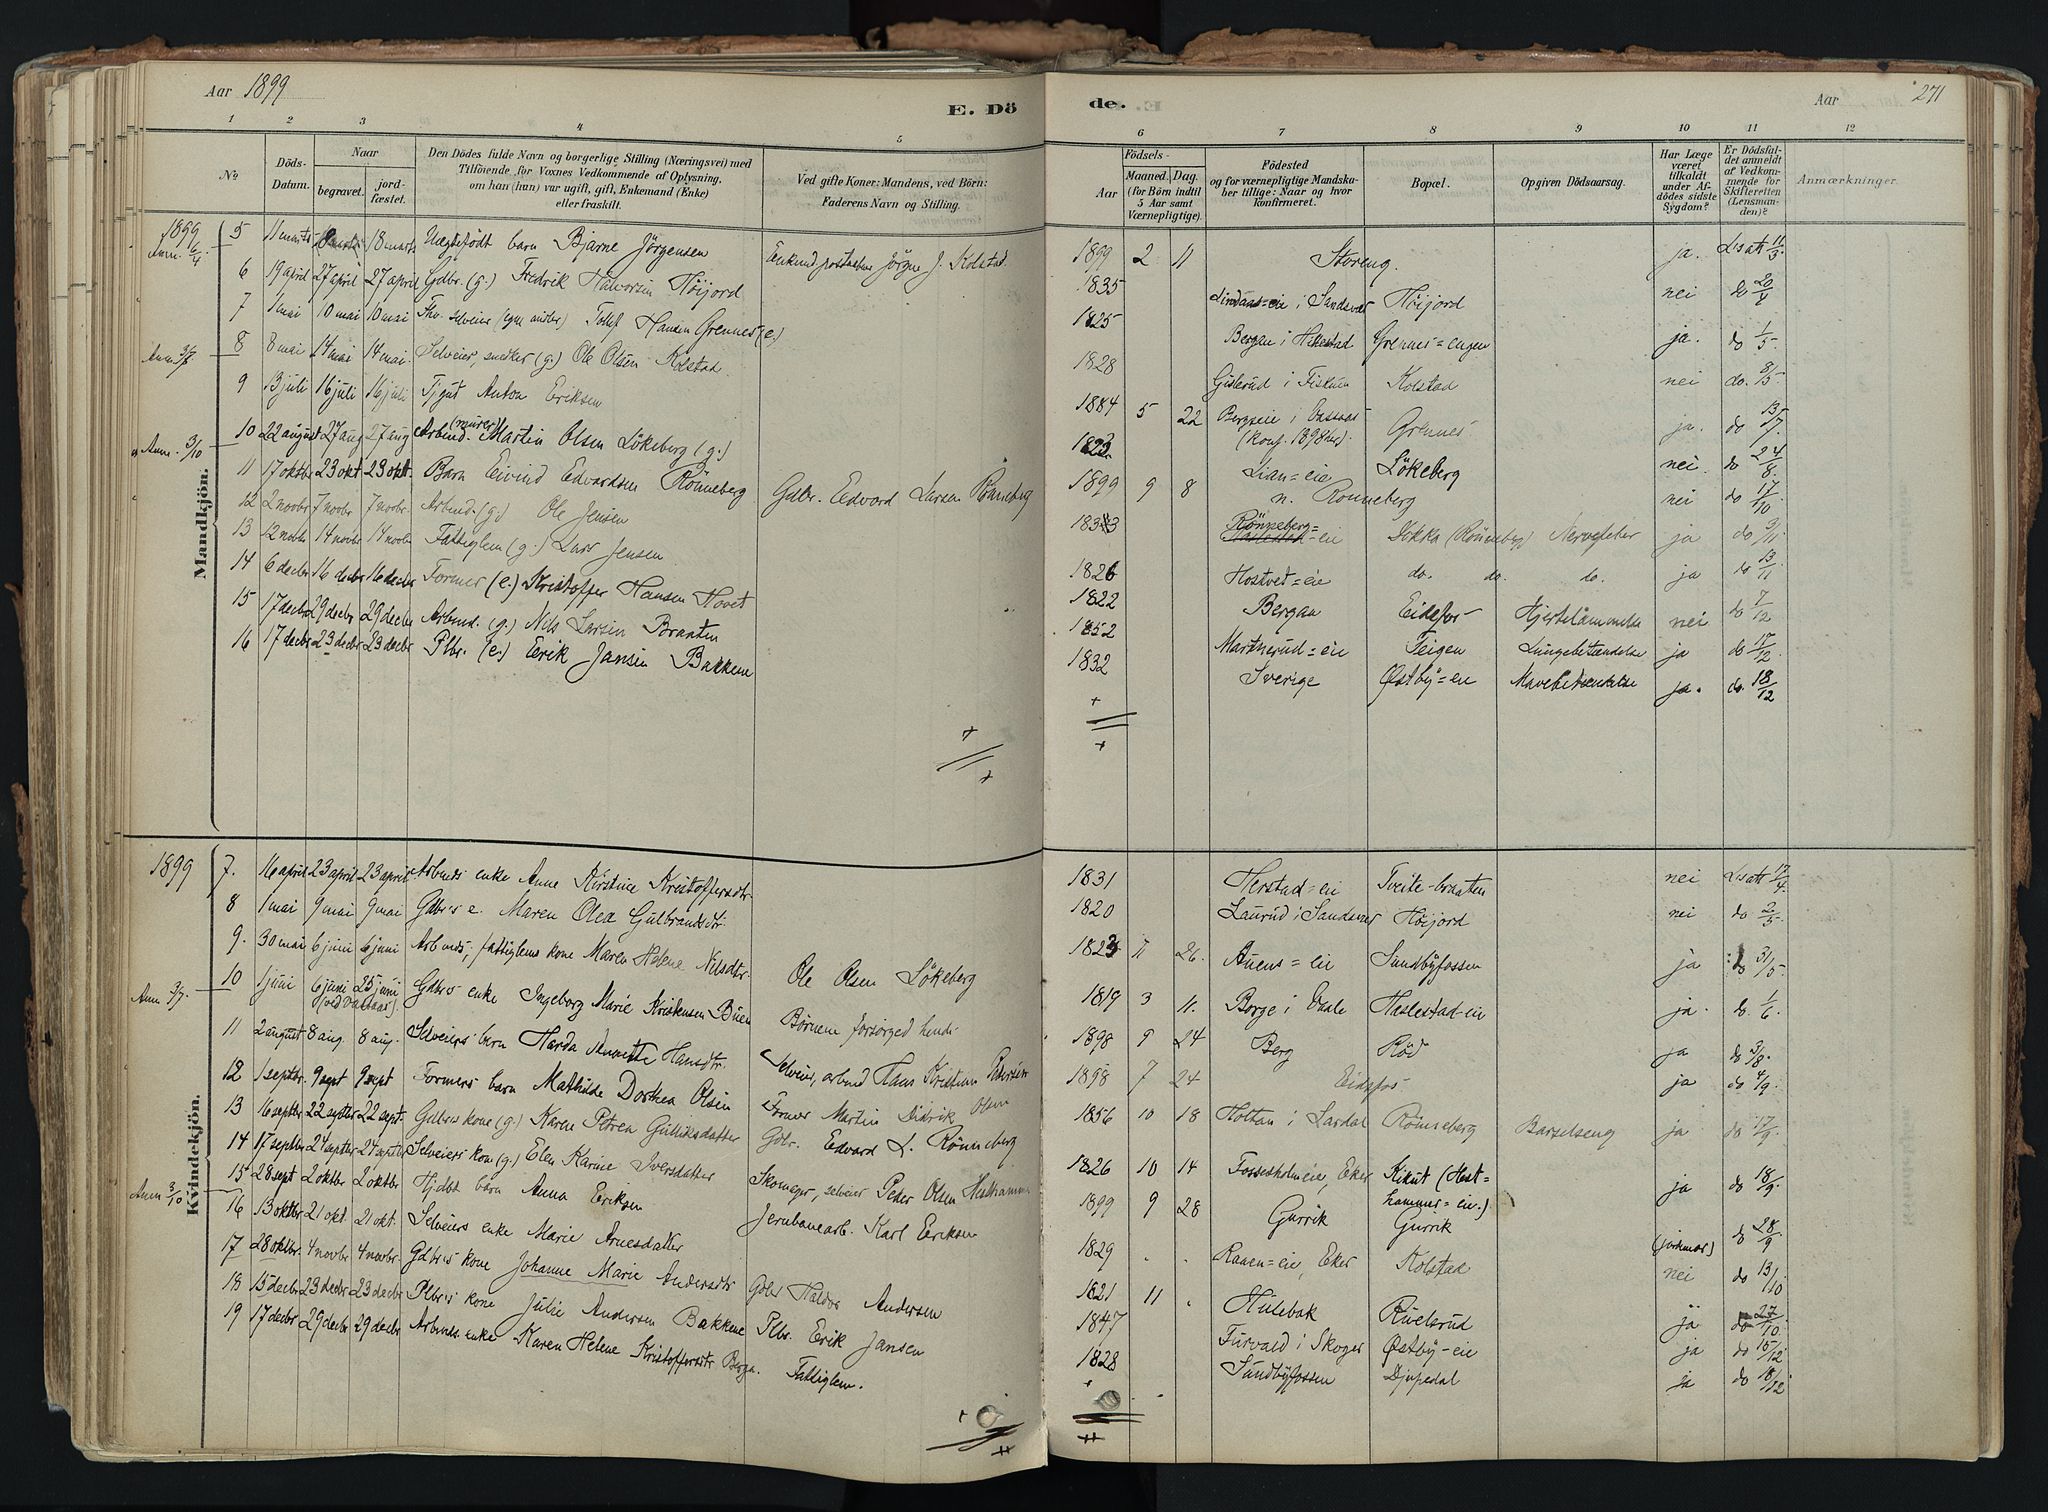 Aar 1899
E. Dö
de.
Aar 271
1 2 3 4 5 6 7 8 9 10 11 12
No
Döds-Datum.
Naar
begravet. jordfæstet.
Den Dödes fulde Navn og borgerlige Stilling (Næringsvei) med
Tilföiende for Voxnes Vedkommende af Oplysning,
om han (hun) var ugift, gift, Enkemand (Enke)
eller fraskilt.
Ved gifte Koner: Mandens, ved Börn:
Faderens Navn og Stilling.
Födsels-
Aar Maaned. Dag.
(for Börn indtil
5 Aar samt
Værnepligtige).
Födested
og for værnepligtige Mandskaber tillige: Naar og hvor
konfirmeret.
Bopæl.
Opgiven Dödsaarsag.
Har Læge
været
tilkaldt
under Afdödes sidste
Sygdom?
Er Dödsfaldet anmeldt
af Vedkommende for
Skifteretten
(Lensmanden)?
Anmærkninger.
Mandkjön.
1899
Anm. 6/4
5 11 marts 18 marts Uegtefödt barn Bjarne Jörgensen Jörgen J. Kolstad 1899 2 11 Storeng ja. Lsatt 11/3
6 19 april 27 april 27 april Gdbr. (g.) Fredrik Halvorsen Höijord 1835 i Sandsvær Höijord nei do 20/4
7 1 mai 10 mai 10 mai Fhv. selveier Hansen Grennes (e.) 1825 Bergan i Hikestad Grennes=engen ja. do 1/5
8 8 mai 14 mai 14 mai Selveier, snedker (g.) Ole Olsen Kolstad 1828 Gislerud i Fiskum Kolstad nei do. 8/5
Anm. 3/7
9 13 juli 16 juli 16 juli Tjgut Anton Eriksen 1884 5 22 Bergseie i (konf. 1898 her). Grennes ja. do 13/7
10 22 august 27 aug 27 aug Arbmd. (murer) Martin Olsen Lökeberg (g.) 1823 Lian=eie Lökeberg nei do 24/8
Anm. 3/10
11 17 oktbr 23 okt 23 okt. Barn Eivind Edvardsen Rönneberg Gdbr. Edvard Larsen Rönneberg 1899 9 8 n. Rönneberg nei do 17/10
12 2 novbr 7 novbr 7 novbr. Arbmd. (g.) Ole Jensen Rönneberg=eie (Rönneberg) ja do 9/11
13 12 novbr 14 novbr 14 novbr Fattiglem (g.) Lars Jensen 1826 Hostvet=eie do. do. do. ja do 13/11
14 6 decbr 16 decbr 16 decbr Former (e.) Kristoffer Hansen Hovet 1822 Bergan Eidsfos Hjertelammelse nei do 7/12
15 17 decbr 29 decbr 29 decbr Arbmd. (g.) Nils Larsen Braaten 1852 Martnerud=eie Teigen Lungebetændelse ja do 17/12
16 17 decbr 23 decbr 23 decbr Plbr. (e.) Erik Jansen Bakkene 1832 Sverige Østby=eie Mavebetændelse ja. do. 18/12
Kvindekjön.
1899
7. 16 april 23 april 23 april Arbmds enke Anne Kirstine Kristoffersdtr. 1831 Herstad=eie Tveite-braaten nei Lsatt 17/4
8 1 mai 9 mai 9 mai Gdbr's e. Maren Olea Gulbrandsdtr. 1820 Laurud i Sandsvær Höijord nei do 2/5
9. 30 mai 6 juni 6 juni Arbmds, fattiglems kone Maren Helene Nilsdtr. Ole Olsen Lökeberg 1823 11 26. Auens=eie Sundbyfossen ja do 31/5
10 1 juni 6 juni 25 juni Gdbr's enke Ingeborg Marie Kristensen Buen Börnene forsörged hende 1819 3 11. Borge i Vaale Haslestad-eie ja. do. 1/6
Anm 3/7.
11 2 august 8 aug. 8 aug. Selveiers barn Harda Annette Hansdtr. Selveier, arbmd Hans Kristian Pedersen 1898 9 24 Berg Röd ja do 3/8
12 1 septbr. 9 sept 9 sept Formers barn Mathilde Dorthea Olsen Former Martin Didrik Olsen 1898 7 24 Eidsfos ja do 4/9
13 16 septbr 22 septbr 22 sept. Gdbrs kone (g) Karen Petrea Gulliksdatter Gdbr. Edvard L. Rönneberg 1856 10 18 Holtan i Lardal Rönneberg Barselseng ja do 17/9.
14 17 septbr 24 septbr 24 septbr Selveiers kone (g) Elen Karine Iversdatter Skomager, selveier Peder Olsen Hesthammer 1826 10 14 Fossesholmeie, Eker Kikut (Hest=hammer=eie.) ja do 18/9.
15 28 sept 2 oktbr 2 oktbr Hjdöbt barn Anna Eriksen Jernbanearb. Karl Eriksen 1899 9 28 Gurrik Gurrik (jordmor) do 28/9
Anm 3/10
16 13 oktbr 21 okt. 21 okt. Selveiers enke Marie Arnesdatter 1829 Raaen=eie, Eker Kolstad nei do 13/10
17 28 oktbr. 4 novbr 4 novbr. Gdbr's kone Johanne Marie Andersdtr Gdbr Haldor Andersen 1821 11 Hulebak Ruelsrud ja do 27/10.
18 15 decbr 23 decbr 23 decbr Plbr's kone Julie Andersen Bakkene Plbr. Erik Jansen 1847 Furvald i Skoger Østby-eie ja do 15/12
19 17 decbr 29 decbr 29 decbr Arbmds enke Karen Helene Kristoffersdtr Bergn. Fattiglem. 1828 Sundbyfossen Djupedal ja do 18/12